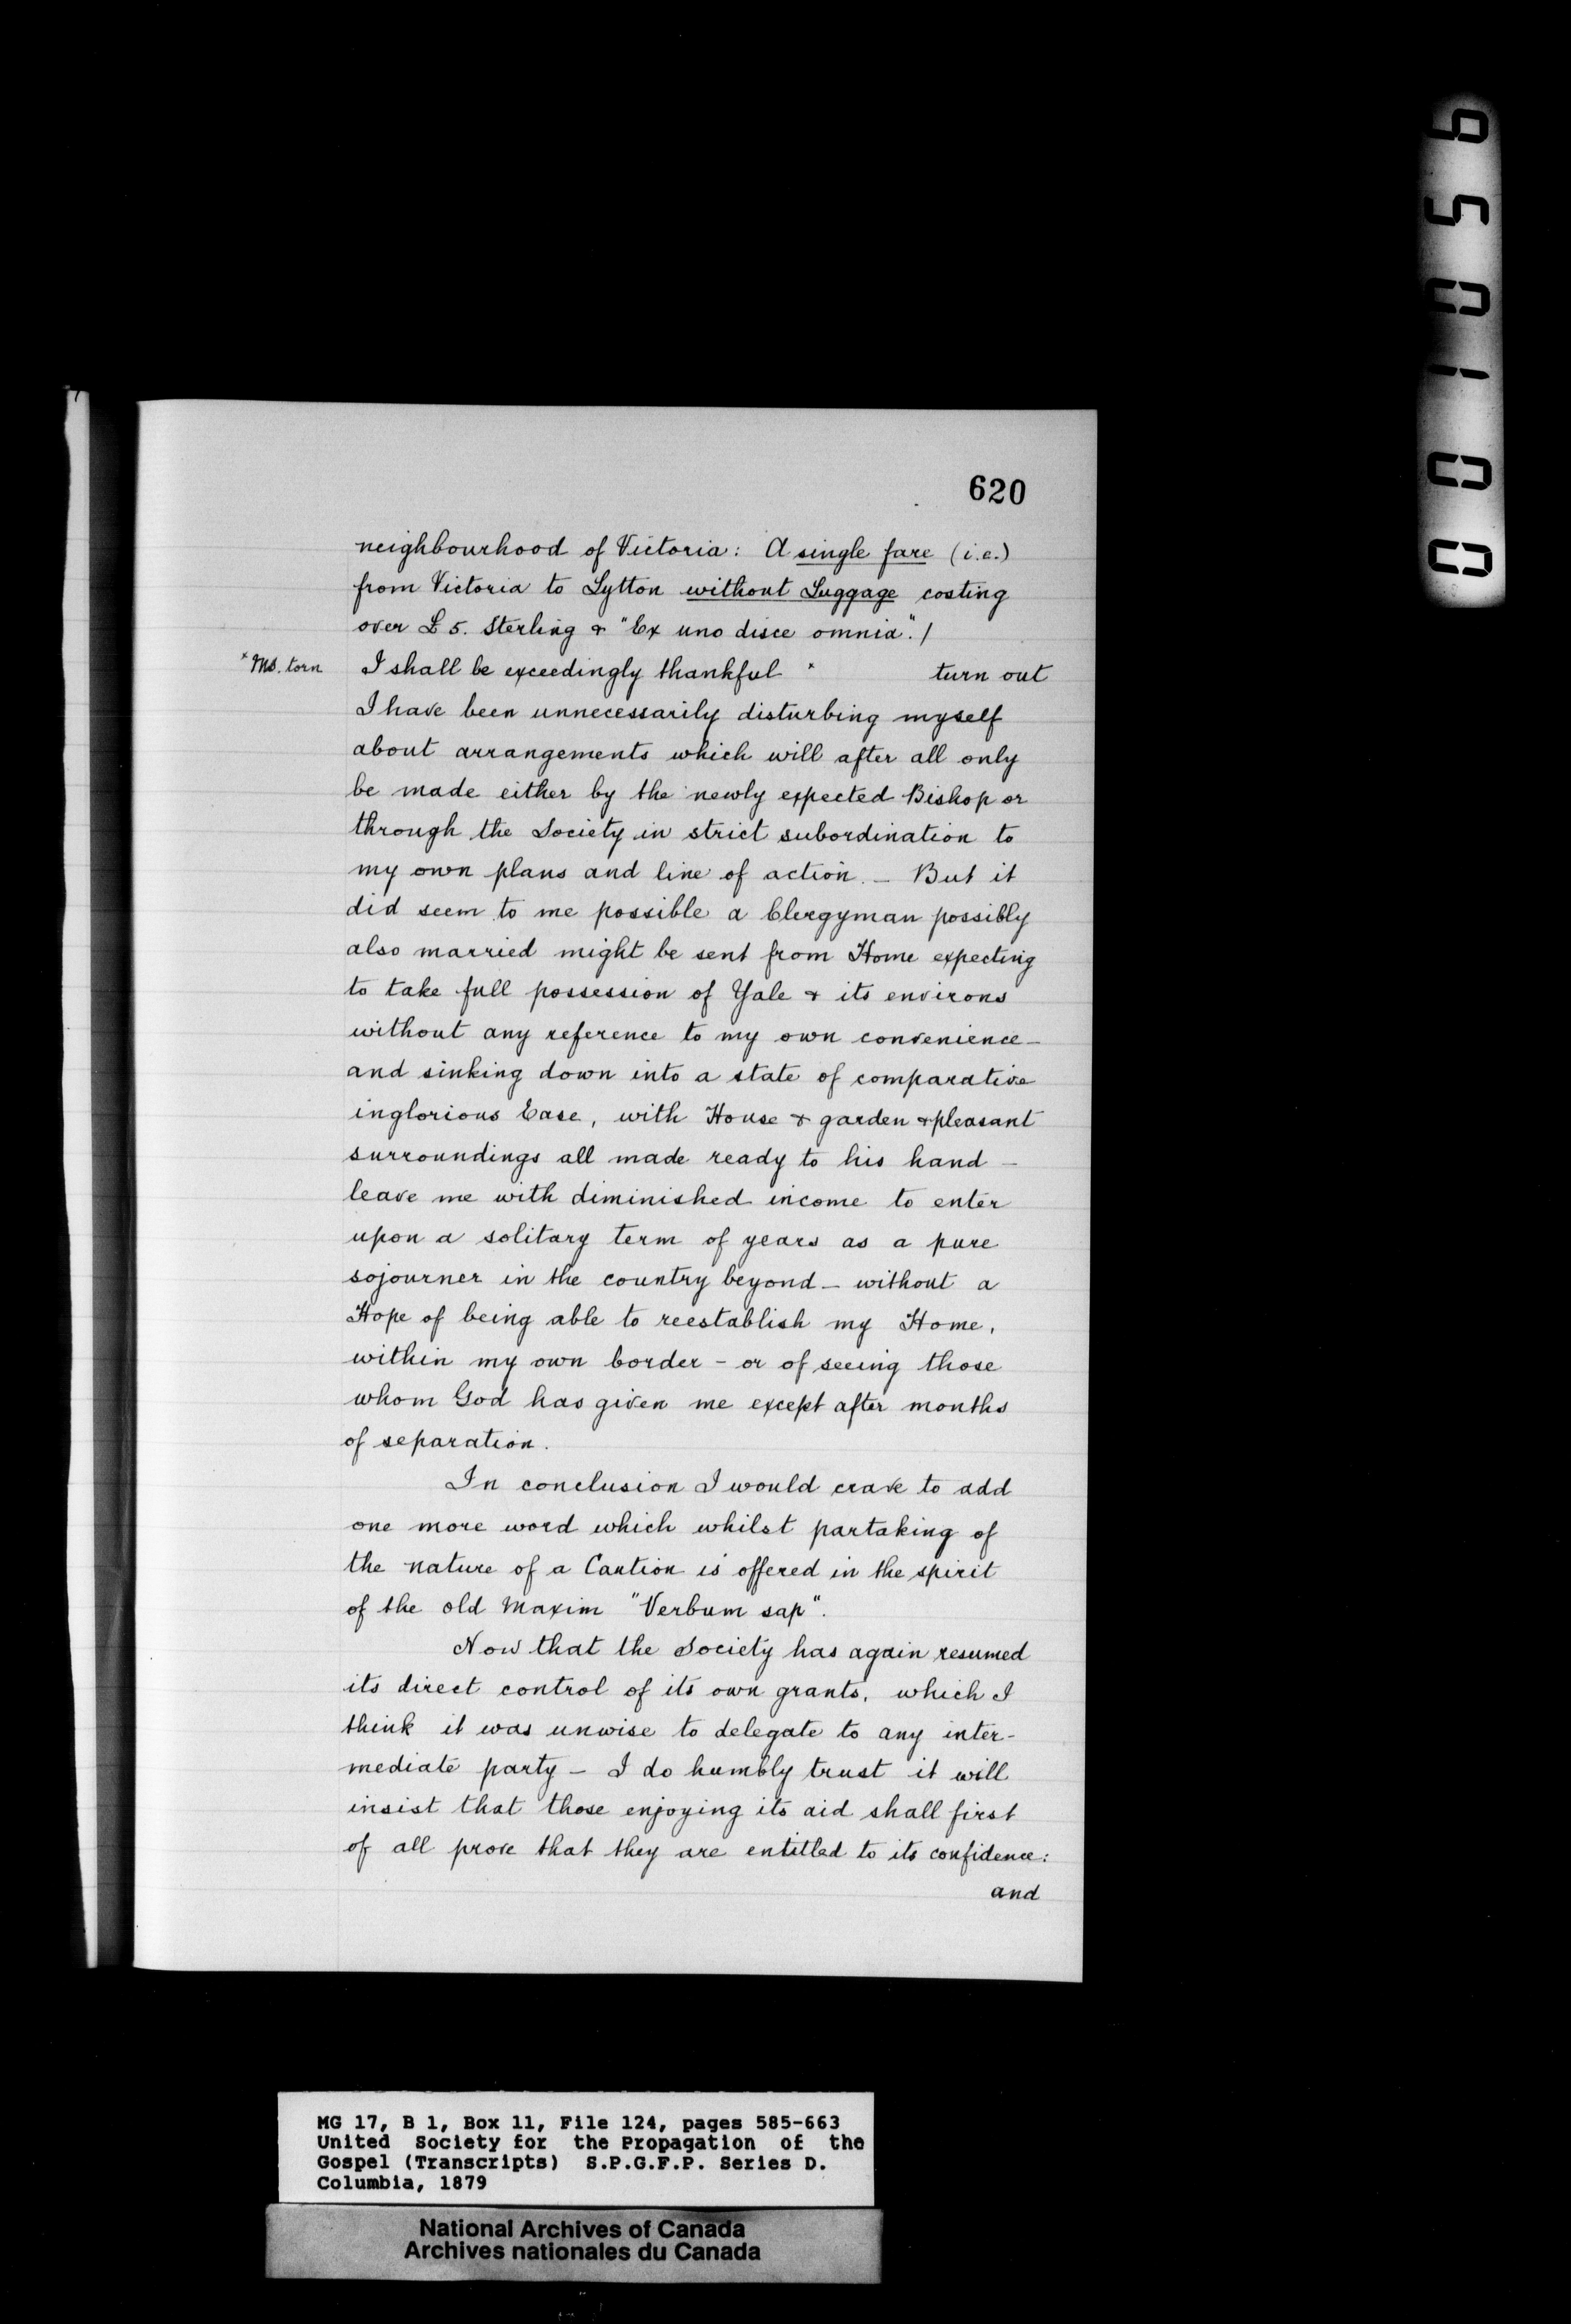 620
neighbourhood of Victoria: A single fare (i.e.)
from Victoria to Lytton without Luggage costing
over £5. Sterling & "Ex uno disce omnia"./
* Ms. torn I shall be exceedingly thankful * turn out
I have been unnecessarily disturbing myself
about arrangements which will after all only
be made either by the newly expected Bishop or
through the Society in strict subordination to
my own plans and line of action. – But it
did seem to me possible a Clergyman possibly
also married might be sent from Home expecting
to take full possession of Yale & its environs
without any reference to my own convenience –
and sinking down into a state of comparative
inglorious Ease, with House & garden & pleasant
surroundings all made ready to his hand –
leave me with diminished income to enter
upon a solitary term of years as a pure
sojourner in the country beyond – without a
Hope of being able to reestablish my Home,
within my own border – or of seeing those
whom God has given me except after months
of separation.
In conclusion I would crave to add
one more word which whilst partaking of
the nature of a Caution is offered in the spirit
of the old Maxim "Verbum sap".
Now that the Society has again resumed
its direct control of its own grants, which I
think it was unwise to delegate to any inter-
mediate party – I do humbly trust it will
insist that those enjoying its aid shall first
of all prove that they are entitled to its confidence:
and
001056
MG 17, B 1, Box 11, File 124, pages 585-663
United Society for the Propagation of the
Gospel (Transcripts) S.P.G.F.P. Series D.
Columbia, 1879
National Archives of Canada
Archives nationales du Canada